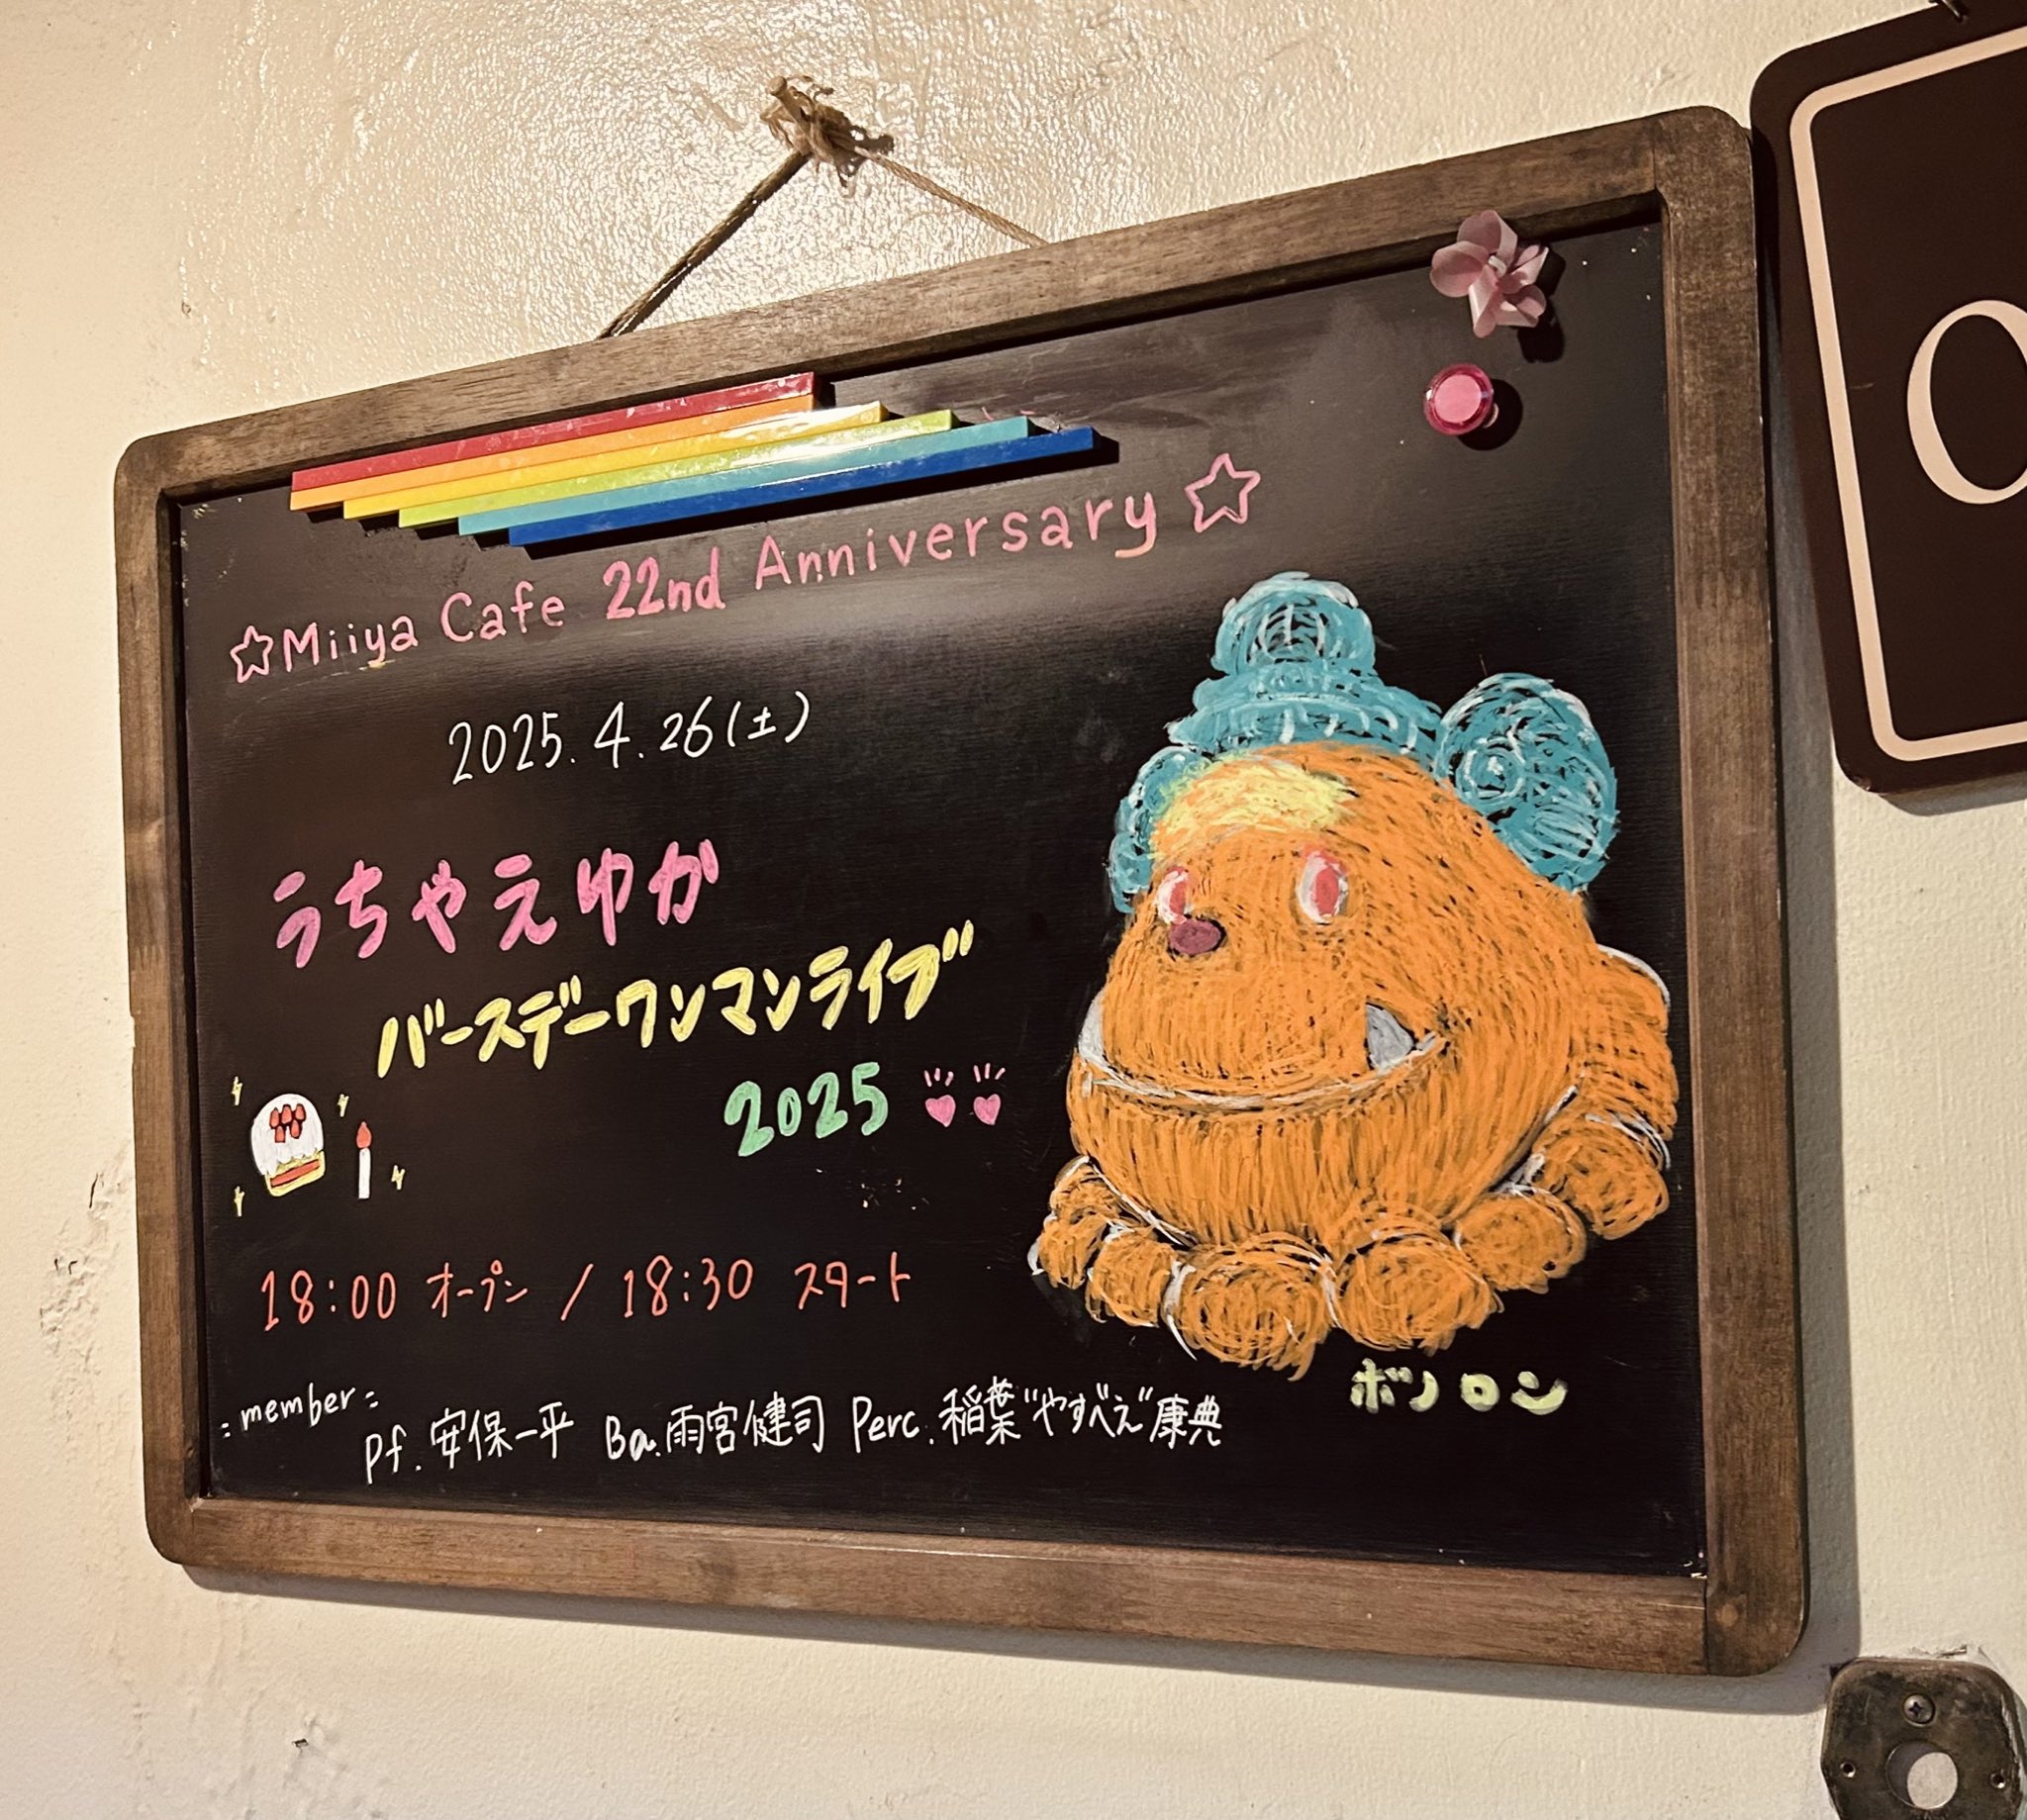 ☆Miiya Cafe 22nd Anniversary☆
2025.4.26(土)
うちやえゆか
バースデーワンマンライブ
2025
18:00 オープン / 18:30 スタート
:member:
Pf.安保一平 Ba.雨宮健司 Perc.稲葉"やすべえ"康典
ボノロン